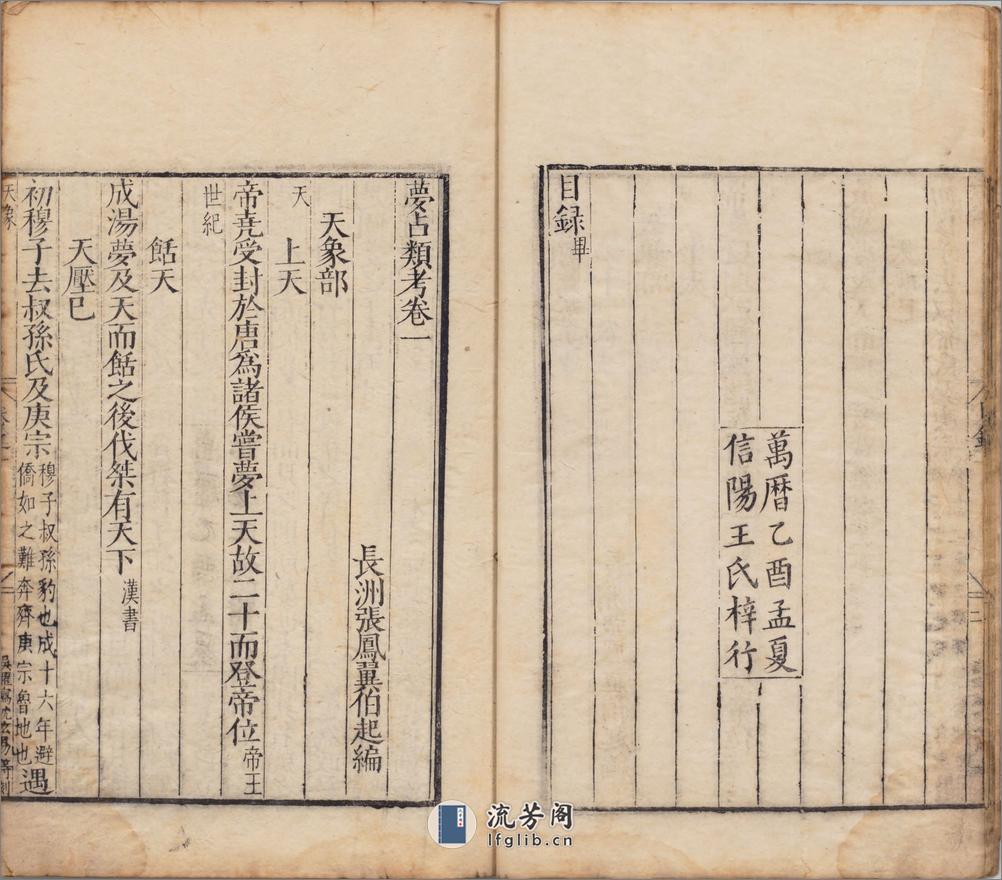 目録畢
萬曆乙酉孟夏
信陽王氏梓行
夢占類考卷一
長洲張鳳翼伯起編
天象部
天
上天
帝堯受封於唐為諸侯嘗夢上天故二十而登帝位帝王
世紀
餂天
成湯夢及天而餂之後伐桀有天下漢書
天壓已
初穆子去叔孫氏及庚宗穆子叔孫豹也成十六年避僑如之難奔齊庚宗魯地也遇
天象
流芳阁
lfglib.cn